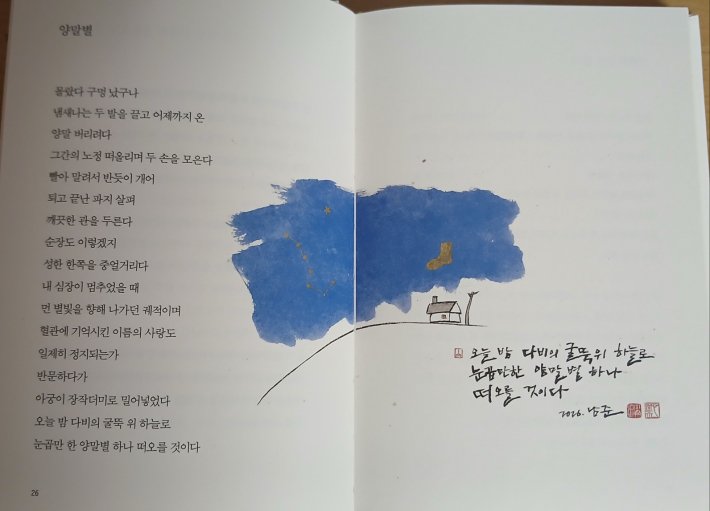 양말별
몰랐다 구멍 났구나
냄새나는 두 발을 끌고 어제까지 온
양말 버리려다
그간의 노정 떠올리며 두 손을 모은다
빨아 말려서 반듯이 개어
퇴고 끝난 파지 살펴
깨끗한 관을 두른다
순장도 이렇겠지
성한 한쪽을 중얼거리다
내 심장이 멈추었을 때
먼 별빛을 향해 나가던 궤적이며
혈관에 기억시킨 이름의 사랑도
일제히 정지되는가
반문하다가
아궁이 장작더미로 밀어넣었다
오늘 밤 다비의 굴뚝 위 하늘로
눈곱만 한 양말별 하나 떠오를 것이다
26
오늘 밤 다비의 굴뚝 위 하늘로
눈곱만한 양말별 하나
떠오를 것이다
2026. 남준